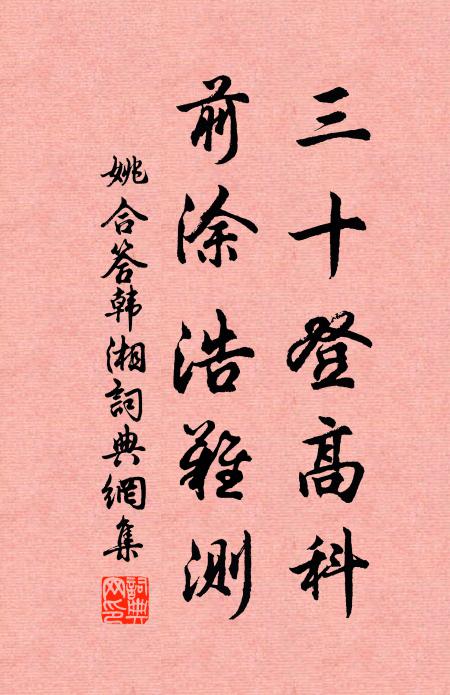 三十登高科
前涂浩難測
姚合答韓湘詞典網集
詞典网印